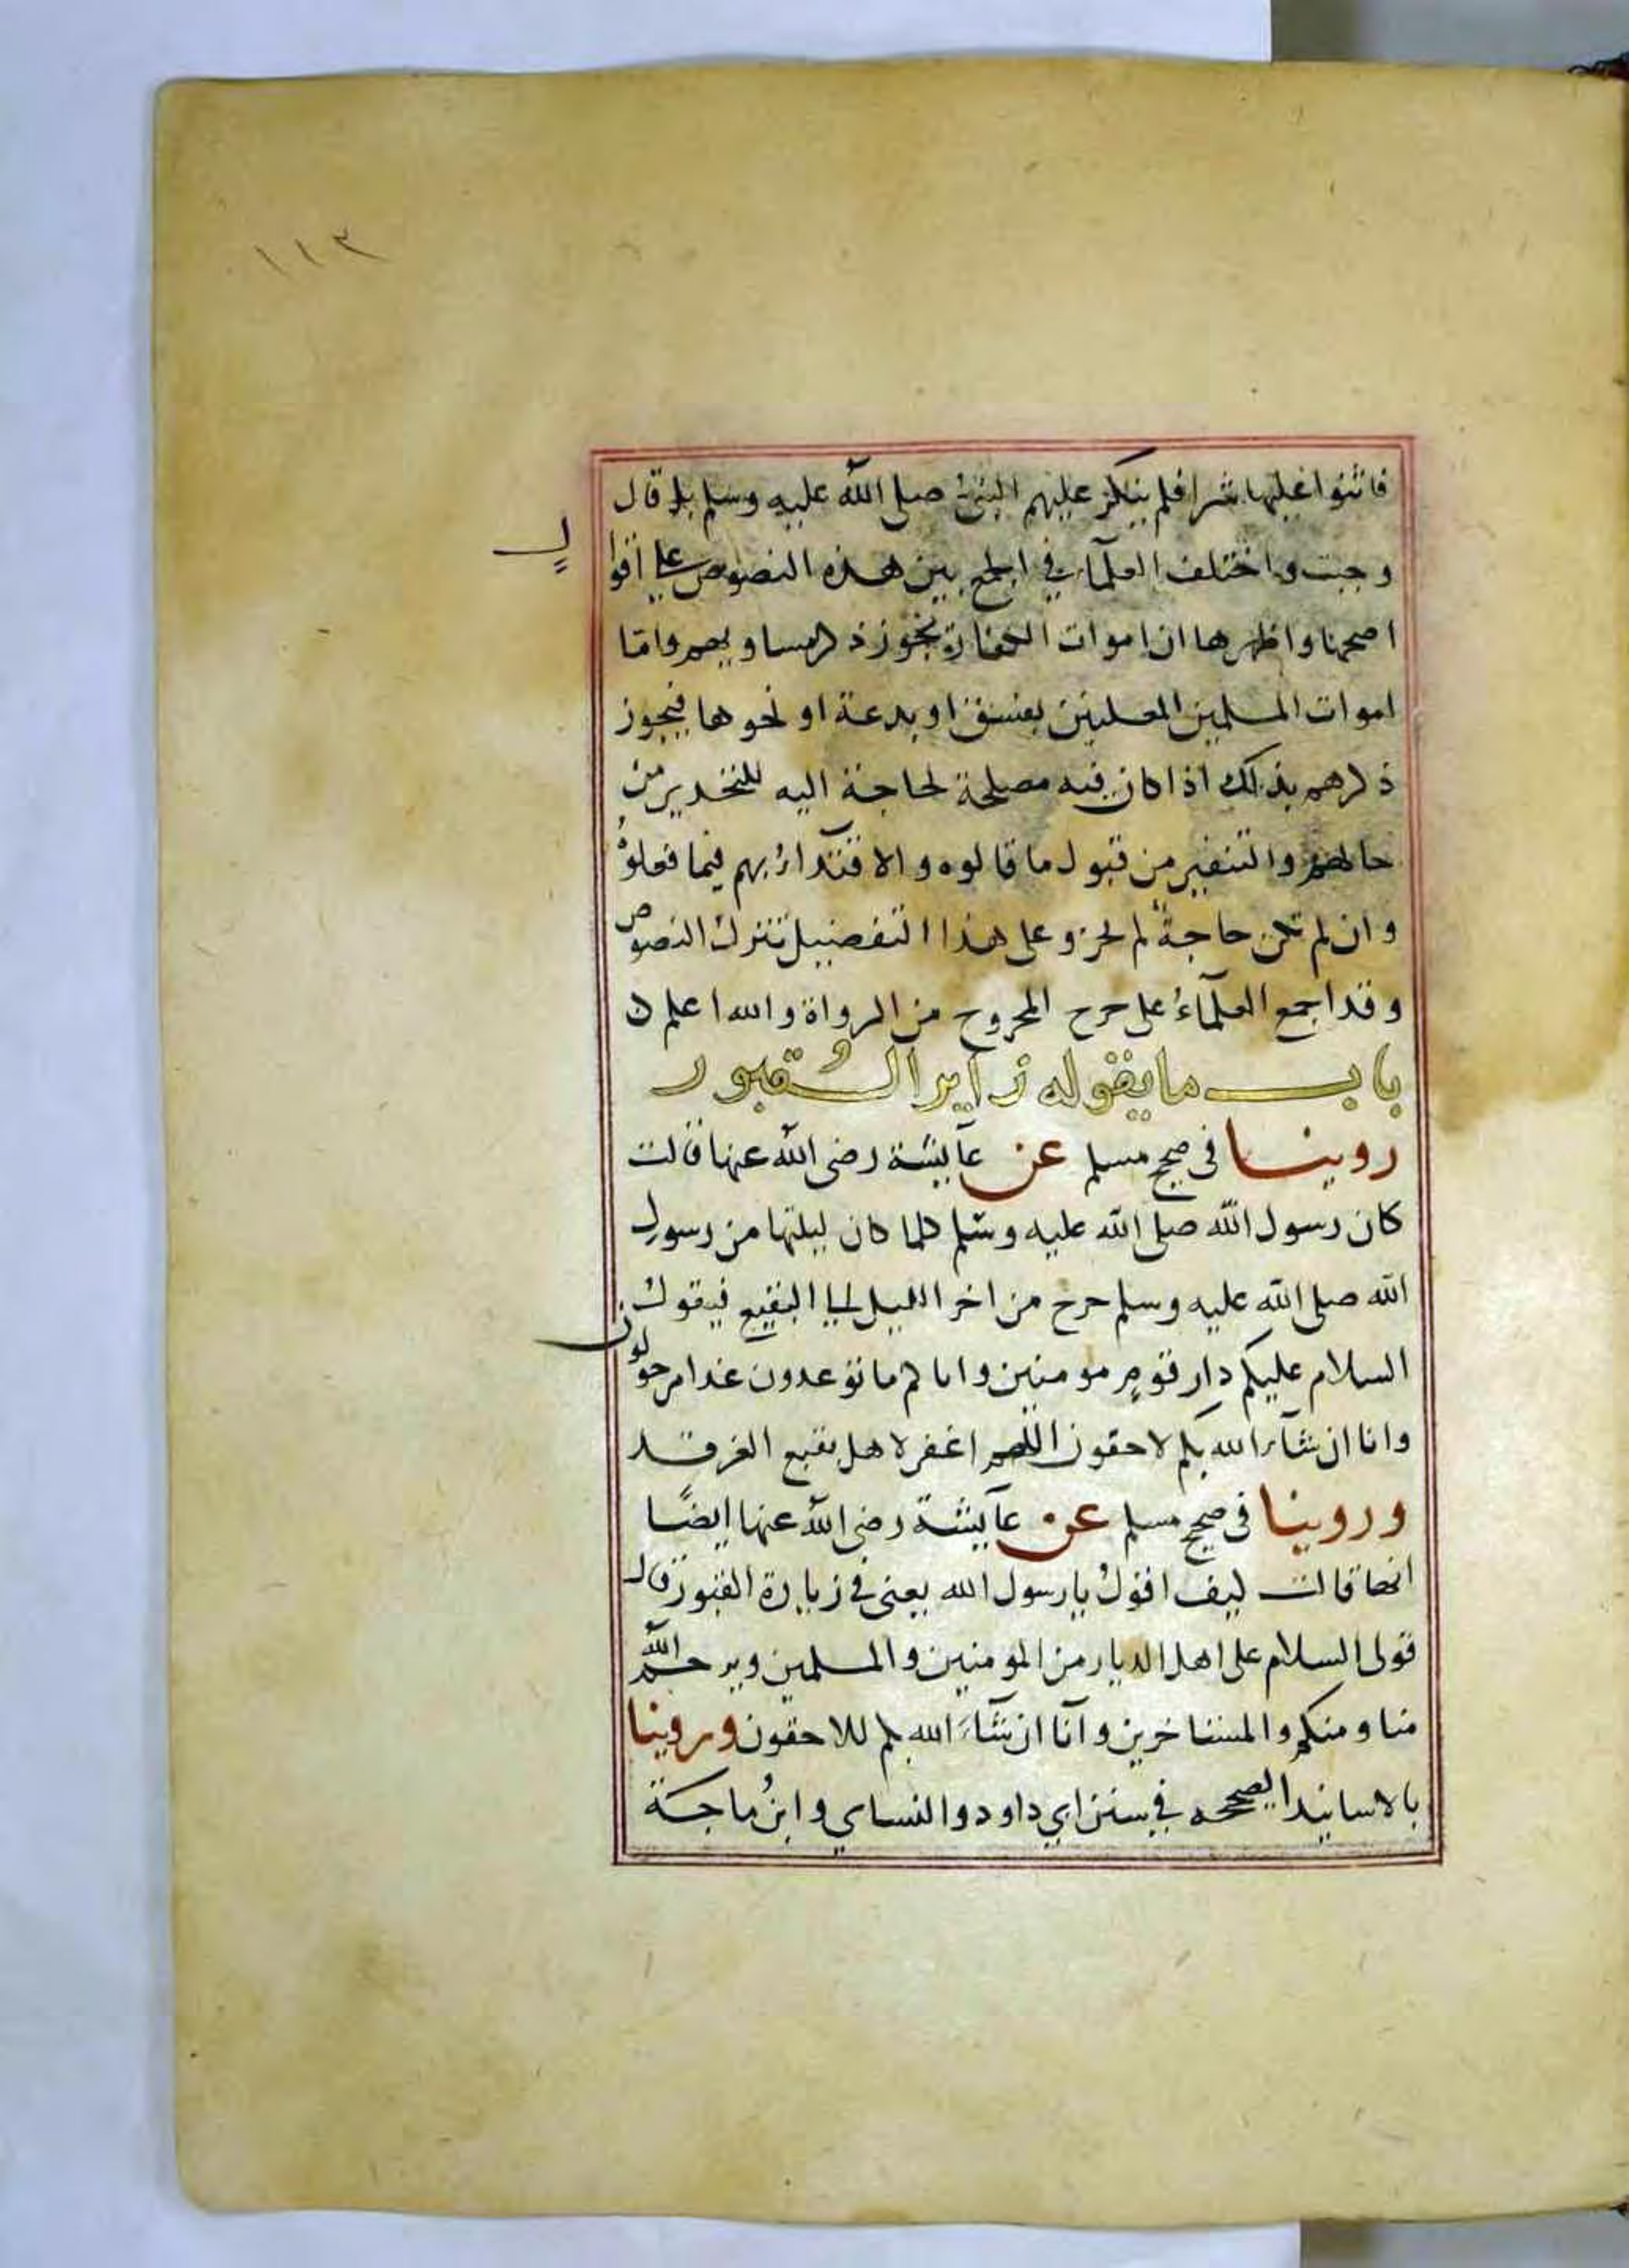 ١١٣
فاثنوا عليها شرا فلم ينكر عليهم النبي صلى الله عليه وسلم بل قال
وجبت واختلف العلماء في الجمع بين هذه النصوص على اقوا
ل
اصحها واظهرها ان اموات الكفار يجوز ذكر مساويهم واما
اموات المسلمين المعلنين بفسق او بدعة او نحوها فيجوز
ذكرهم بذلك اذا كان فيه مصلحة لحاجة اليه للتحذير من
حالهم والتنفير من قبول ما قالوه والاقتداء بهم فيما فعلوه
وان لم تكن حاجة لم يجز وعلى هذا التفصيل تنزل النصوص
وقد اجمع العلماء على جرح المجروح من الرواة والله اعلم
باب ما يقوله زاير القبور
روينا في صحيح مسلم عن عايشة رضى الله عنها قالت
كان رسول الله صلى الله عليه وسلم كلما كان ليلتها من رسول
الله صلى الله عليه وسلم خرج من اخر الليل الى البقيع فيقول
السلام عليكم دار قوم مومنين واتاكم ما توعدون غدا موجلون
وانا ان شاء الله بكم لاحقون اللهم اغفر لاهل بقيع الغرقد
وروينا في صحيح مسلم عن عايشة رضى الله عنها ايضًا
انها قالت كيف اقول يا رسول الله يعنى في زيارة القبور قال
قولى السلام على اهل الديار من المومنين والمسلمين ويرحم الله
منا ومنكم والمستاخرين وانا ان شاء الله بكم للاحقون وروينا
بالاسانيد الصحيحه في سنن ابي داود والنساي وابن ماجة